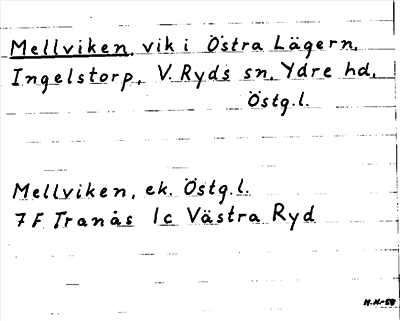 Mellviken, vik i Östra Lägern,
Ingelstorp, V. Ryds sn, Ydre hd,
Östg.l.
Mellviken, ek. Östg.l.
7 F Tranås 1c Västra Ryd
H.H.-58